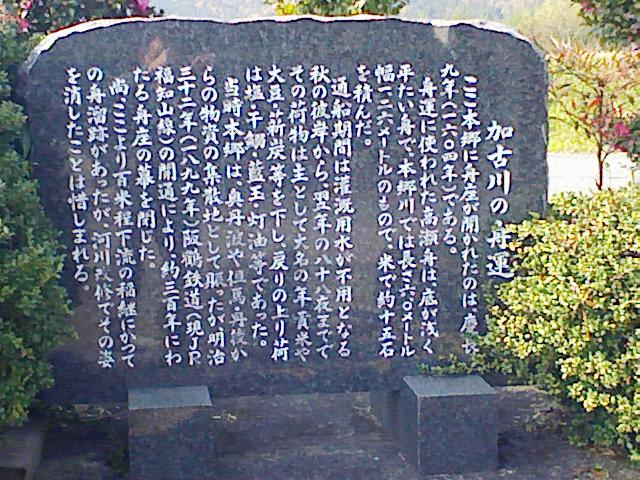 加古川の舟運
ここ本郷に舟座が開かれたのは、慶長
九年(一六〇四年)である。
舟運に使われた高瀬舟は、底が浅く
平たい舟で、本郷川では長さ六〇メートル
幅一二六メートルのもので、米で約十五石
を積んだ。
通船期間は灌漑用水が不用となる
秋の彼岸から、翌年の八十八夜までで
その荷物は主として大名の年貢米や
大豆・薪炭等を下し、戻りの上り荷
は塩・干鰯・藍玉・灯油等であった。
当時、本郷は、奥丹波や但馬・丹後か
らの物資の集散地として賑ったが明治
三十二年(一八九九年)阪鶴鉄道(現JR
福知山線)の開通により、約三百年にわ
たる舟座の幕を閉じた。
尚、ここより百米程下流の稲継にかつて
の舟溜跡があったが、河川改修でその姿
を消したことは惜しまれる。